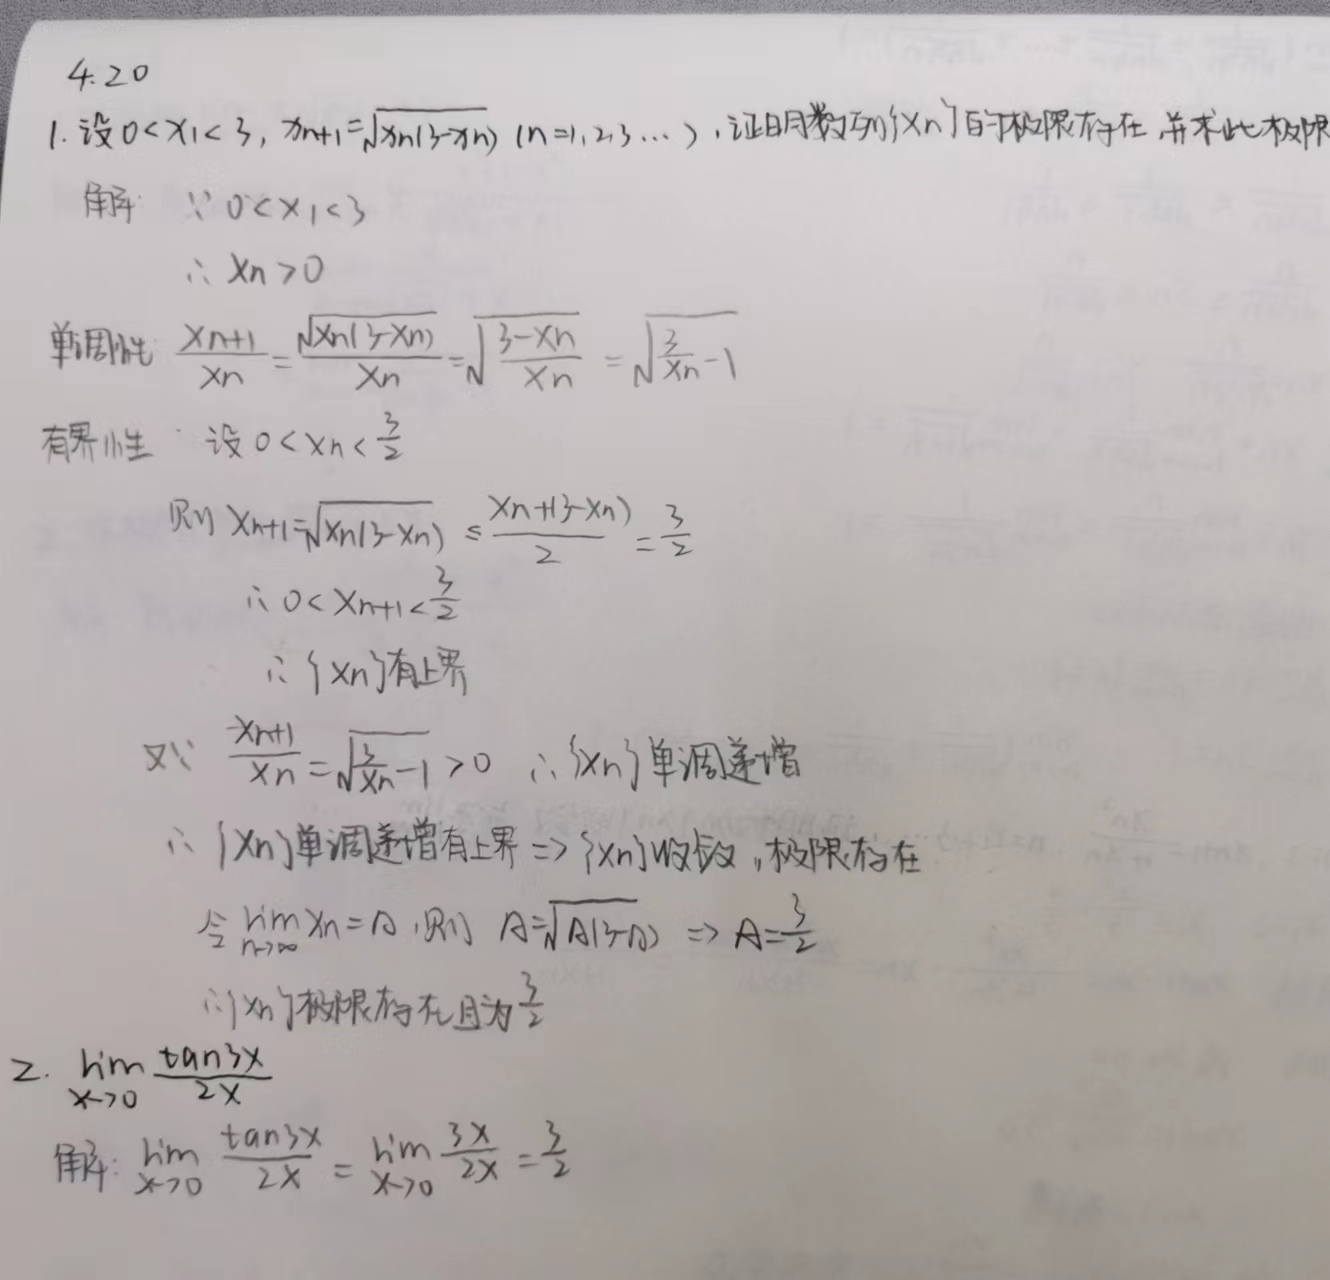 4.20
1. 设 0<x₁<3, xn+1=√(xn(3-xn)) (n=1,2,3…), 证明数列{xn}的极限存在, 并求此极限
解: ∵ 0<x₁<3
∴ xn>0
单调性: xn+1/xn = √(xn(3-xn))/xn = √((3-xn)/xn) = √(3/xn -1)
有界性: 设 0<xn<3/2
则 xn+1=√(xn(3-xn)) ≤ (xn+(3-xn))/2 = 3/2
∴ 0<xn+1<3/2
∴ {xn}有上界
又∵ xn+1/xn = √(3/xn -1) >0 ∴{xn}单调递增
∴ {xn}单调递增有上界 => {xn}收敛, 极限存在
令 lim n→∞ xn=A, 则 A=√(A(3-A)) => A=3/2
∴{xn}极限存在且为 3/2
2. lim x→0 tan3x/2x
解: lim x→0 tan3x/2x = lim x→0 3x/2x = 3/2